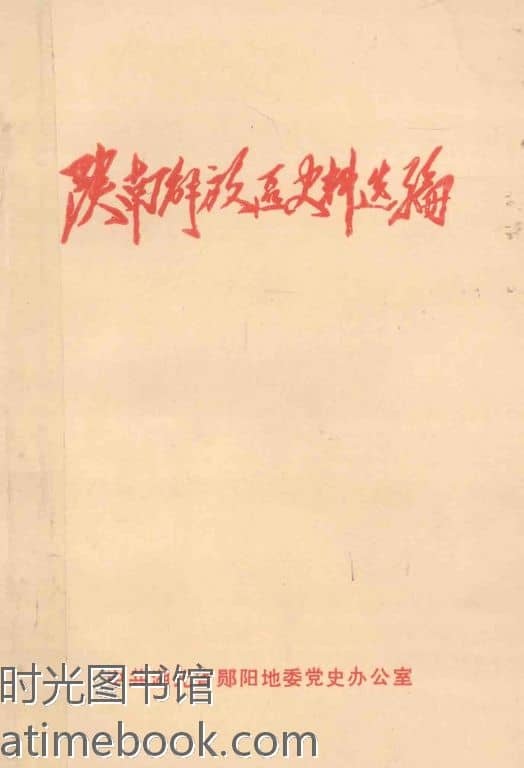 陕南解放区史料选编
郧阳地委党史办公室
时光图书馆
atimebook.com